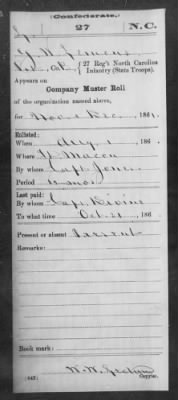 (Confederate.)
27 N.C.
G. W.
27 Reg't North Carolina
Infantry (State Troops).
Appears on
Company Muster Roll
of the organization named above,
for Nov & Dec, 1861.
Enlisted:
When Aug 1, 186
Where Ft. Macon
By whom Capt. Jones
Period 12 mos
Last paid:
By whom Capt.
To what time Oct. 31, 186
Present or absent Present
Remarks:
Book mark:
(642)
W. W.
Copyist.